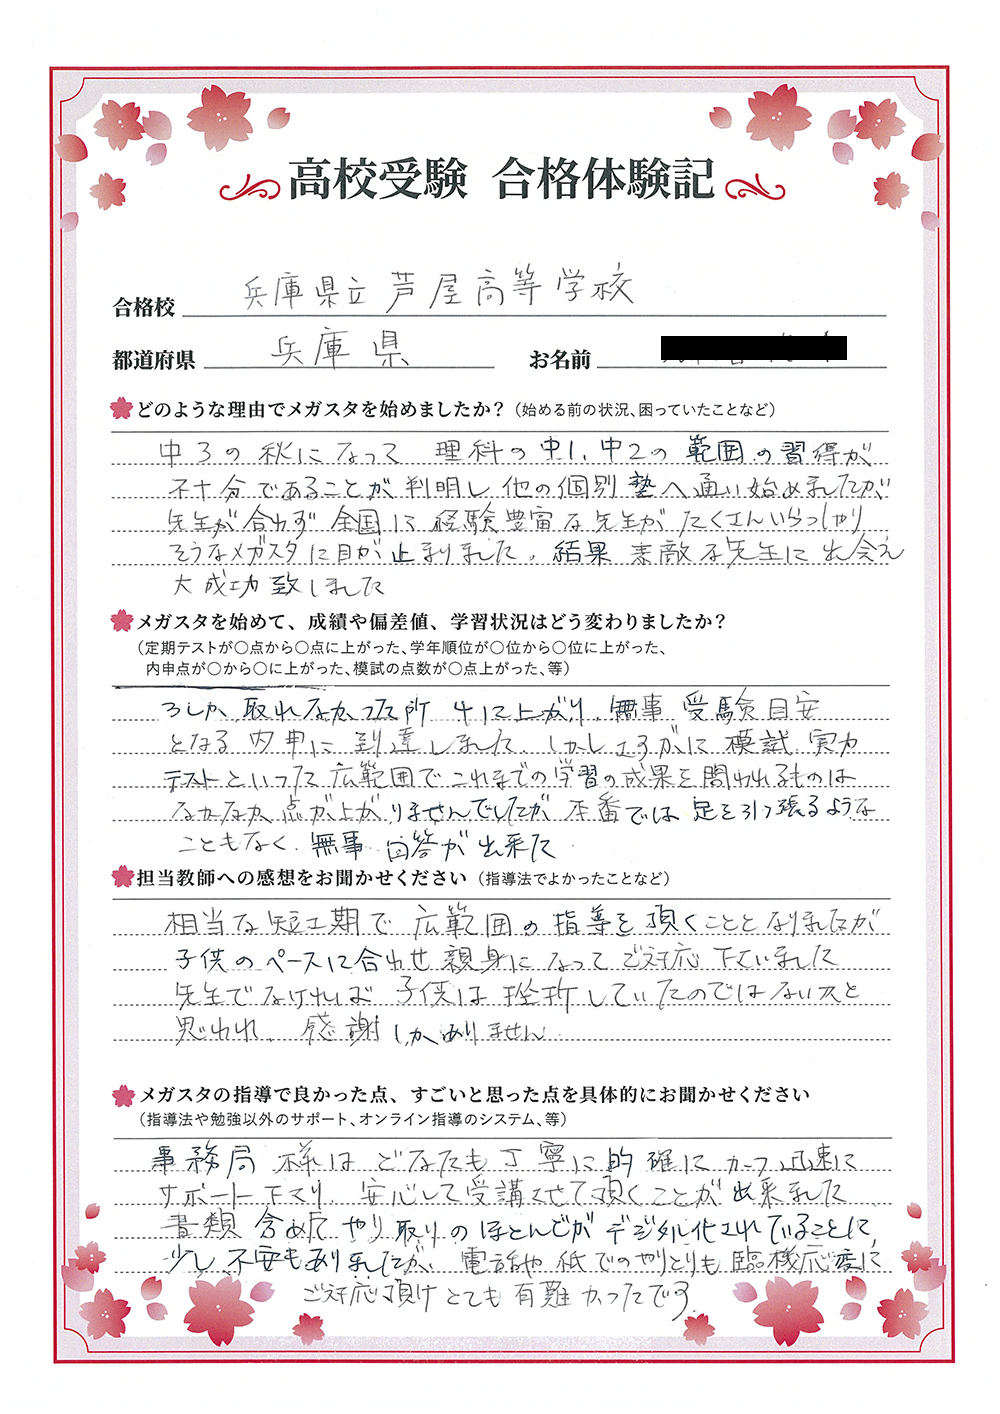 高校受験 合格体験記
合格校 兵庫県立芦屋高等学校
都道府県 兵庫県 お名前
どのような理由でメガスタを始めましたか？（始める前の状況、困っていたことなど）
中3の秋になって 理科の中1、中2の範囲の習得が
不十分であることが判明し他の個別塾へ通い始めましたが
先生が合わず 全国に経験豊富な先生がたくさんいらっしゃり
そうなメガスタに目が止まりました。結果 素敵な先生に出会え
大成功致しました
メガスタを始めて、成績や偏差値、学習状況はどう変わりましたか？
（定期テストが〇点から〇点に上がった、学年順位が〇位から〇位に上がった、
内申点が〇から〇に上がった、模試の点数が〇点上がった、等）
3しか取れなかった所 4に上がり、無事 受験目安
となる内申に到達しました。しかしさすがに模試 実力
テストといった広範囲でこれまでの学習の成果を問われるものは
なかなか点が上がりませんでしたが 本番では足を引っ張るような
こともなく、無事 回答が出来た
担当教師への感想をお聞かせください（指導法でよかったことなど）
相当な短期で広範囲の指導を頂くこととなりましたが
子供のペースに合わせ親身になってご対応下さいました
先生でなければ 子供は挫折していたのではないかと
思われ、感謝しかありません
メガスタの指導で良かった点、すごいと思った点を具体的にお聞かせください
（指導法や勉強以外のサポート、オンライン指導のシステム、等）
事務局様はどなたも丁寧に的確に かつ迅速に
サポート下さり、安心して受講させて頂くことが出来ました
書類含めてやり取りのほとんどがデジタル化されていることに、
少し不安もありましたが、電話や紙でのやりとりも臨機応変に
ご対応頂けとても有難かったです